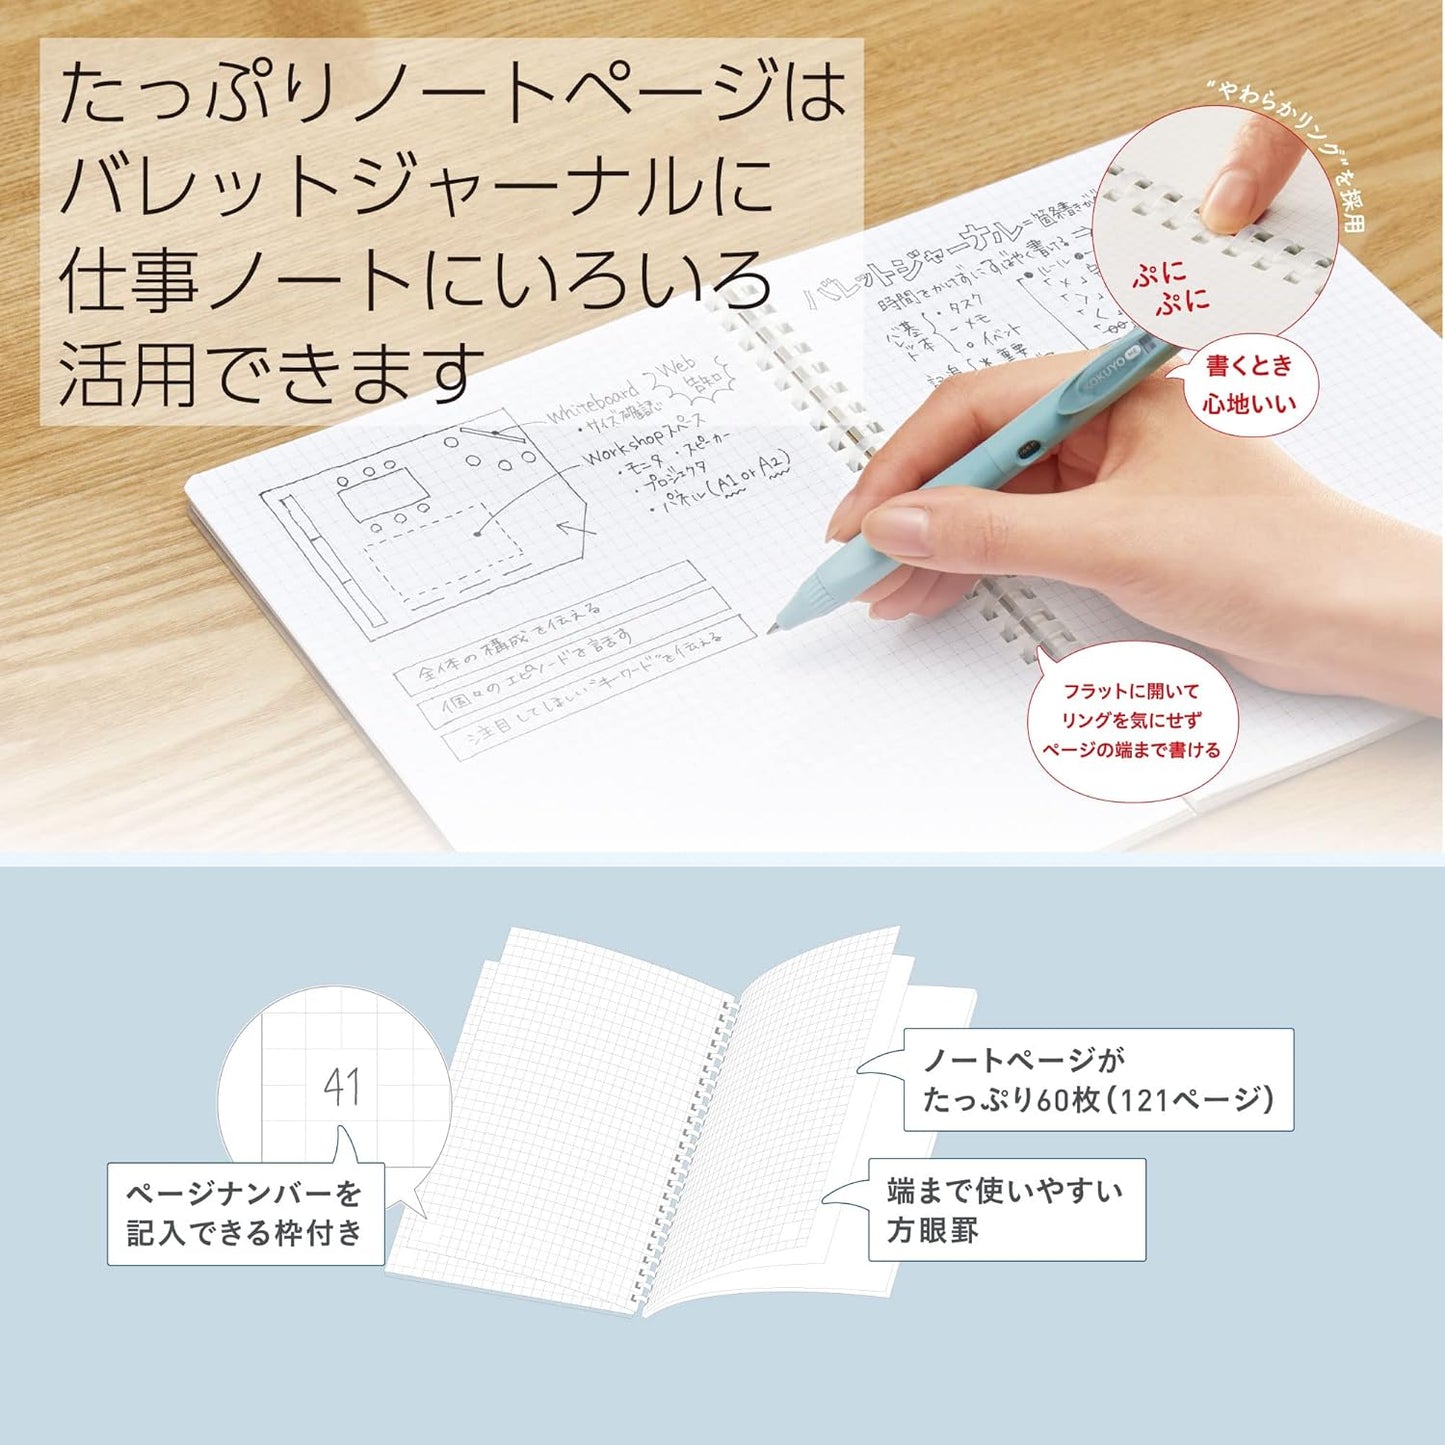 たっぷりノートページは
バレットジャーナルに
仕事ノートにいろいろ
活用できます
“やわらかリング”を採用
ぷに
ぷに
書くとき
心地いい
KOKUYO
バレットジャーナル=箇条書き
時間をかけずにすばやく書ける
基本
バレット
・タスク
−メモ
○イベント
＊重要
・ルール
Whiteboard
・サイズ確認
Web
告知
Workshopスペース
・モニタ ・スピーカー
・プロジェクタ
・パネル(A1 or A2)
全体の構成を伝える
個々のエピソードを話す
注目してほしい“キーワード”を伝える
フラットに開いて
リングを気にせず
ページの端まで書ける
41
ページナンバーを
記入できる枠付き
ノートページが
たっぷり60枚(121ページ)
端まで使いやすい
方眼罫